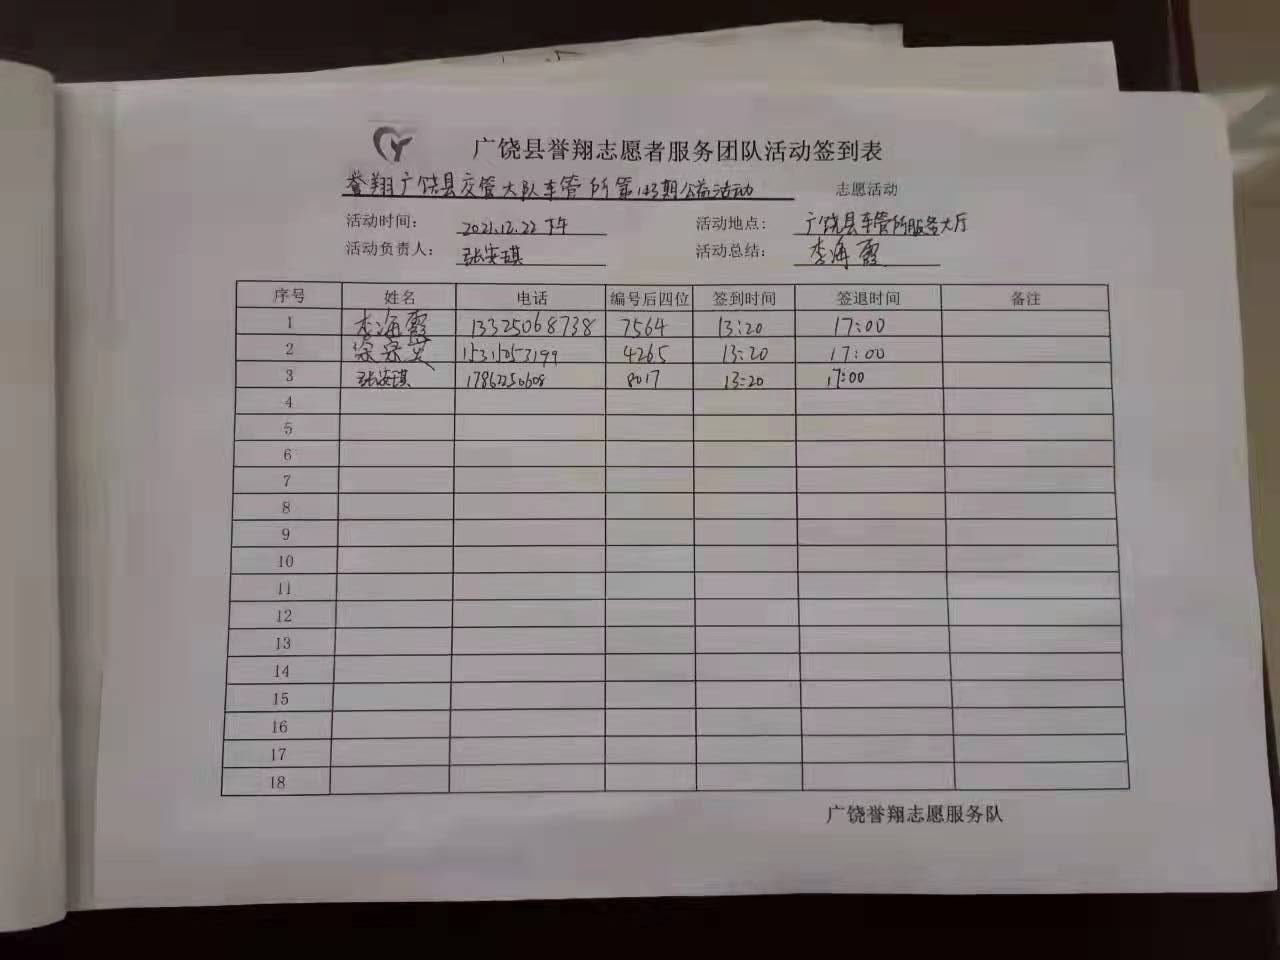 广饶县誉翔志愿者服务团队活动签到表
誉翔广饶县交管大队车管所第143期公益活动 志愿活动
活动时间: 2021.12.22下午 活动地点: 广饶县车管所服务大厅
活动负责人: 张安琪 活动总结: 李海霞
序号 姓名 电话 编号后四位 签到时间 签退时间 备注
1 李海霞 13325068738 7564 13:20 17:00
2 徐宗英 15315053199 4265 13:20 17:00
3 张安琪 17862250608 8017 13:20 17:00
4
5
6
7
8
9
10
11
12
13
14
15
16
17
18
广饶誉翔志愿服务队